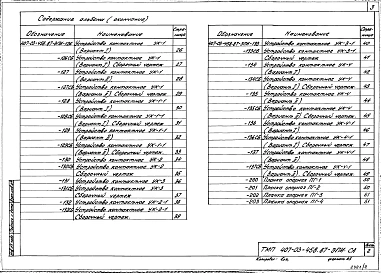 3
Содержание альбома (окончание)
Обозначение Наименование Страница
407-03-458.87-ЭПИ-126 Устройство контактное УК-1
(Вариант I) 26
-126СБ Устройство контактное УК-1
(Вариант I) Сборочный чертеж 27
-127 Устройство контактное УК-1
(Вариант II) 28
-127СБ Устройство контактное УК-1
(Вариант II) Сборочный чертеж 29
-128 Устройство контактное УК-1-1
(Вариант I) 30
-128СБ Устройство контактное УК-1-1
(Вариант I) Сборочный чертеж 31
-129 Устройство контактное УК-1-1
(Вариант II) 32
-129СБ Устройство контактное УК-1-1
(Вариант II) Сборочный чертеж 33
-130 Устройство контактное УК-2 34
-130СБ Устройство контактное УК-2
Сборочный чертеж 35
-131 Устройство контактное УК-3 36
-131СБ Устройство контактное УК-3
Сборочный чертеж 37
-132 Устройство контактное УК-2-1 38
-132СБ Устройство контактное УК-2-1
Сборочный чертеж 39
Обозначение Наименование Страница
407-03-458.87-ЭПИ-133 Устройство контактное УК-3-1 40
-133СБ Устройство контактное УК-3-1
Сборочный чертеж 41
-134 Устройство контактное УК-4
(Вариант I) 42
-134СБ Устройство контактное УК-4
(Вариант I) Сборочный чертеж 43
-135 Устройство контактное УК-4
(Вариант II) 44
-135СБ Устройство контактное УК-4
(Вариант II) Сборочный чертеж 45
-136 Устройство контактное УК-4-1
(Вариант I) 46
-136СБ Устройство контактное УК-4-1
(Вариант I) Сборочный чертеж 47
-137 Устройство контактное УК-4-1
(Вариант II) 48
-137СБ Устройство контактное УК-4-1
(Вариант II) Сборочный чертеж 49
-200 Планка опорная ПГ-1 50
-201 Планка опорная ПГ-2 50
-202 Планка опорная ПГ-3 51
-203 Планка опорная ПГ-4 51
ТМП 407-03-458.87-ЭПИ СА
Лист
2
Копировал
формат А3